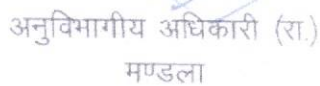 अनुविभागीय अधिकारी (रा.)
मण्डला